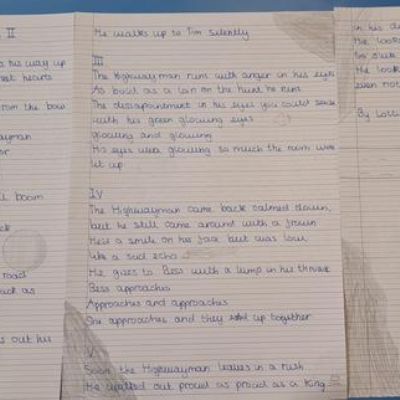 II
his way up
hearts
from the bow
boom
road
as
out his
He walks up to Tim silently
III
The Highwayman runs with anger in his eyes
As bold as a lion on the hunt he runs
The dissapointment in his eyes you could sense
with his green glowing eyes
glowing and glowing
His eyes were glowing so much the room were
let up
IV
The Highwayman came back calmed down,
but he still came around with a frown
Held a smile on his face but was low
like a sad echo
He goes to Bess with a lump in his throat
Bess approaches
Approaches and approaches
She approaches and they up together
V
Soon the Highwayman leaves in a rush
He walked out proud as proud as a King
in his
He look
He look
even not
By Lotti